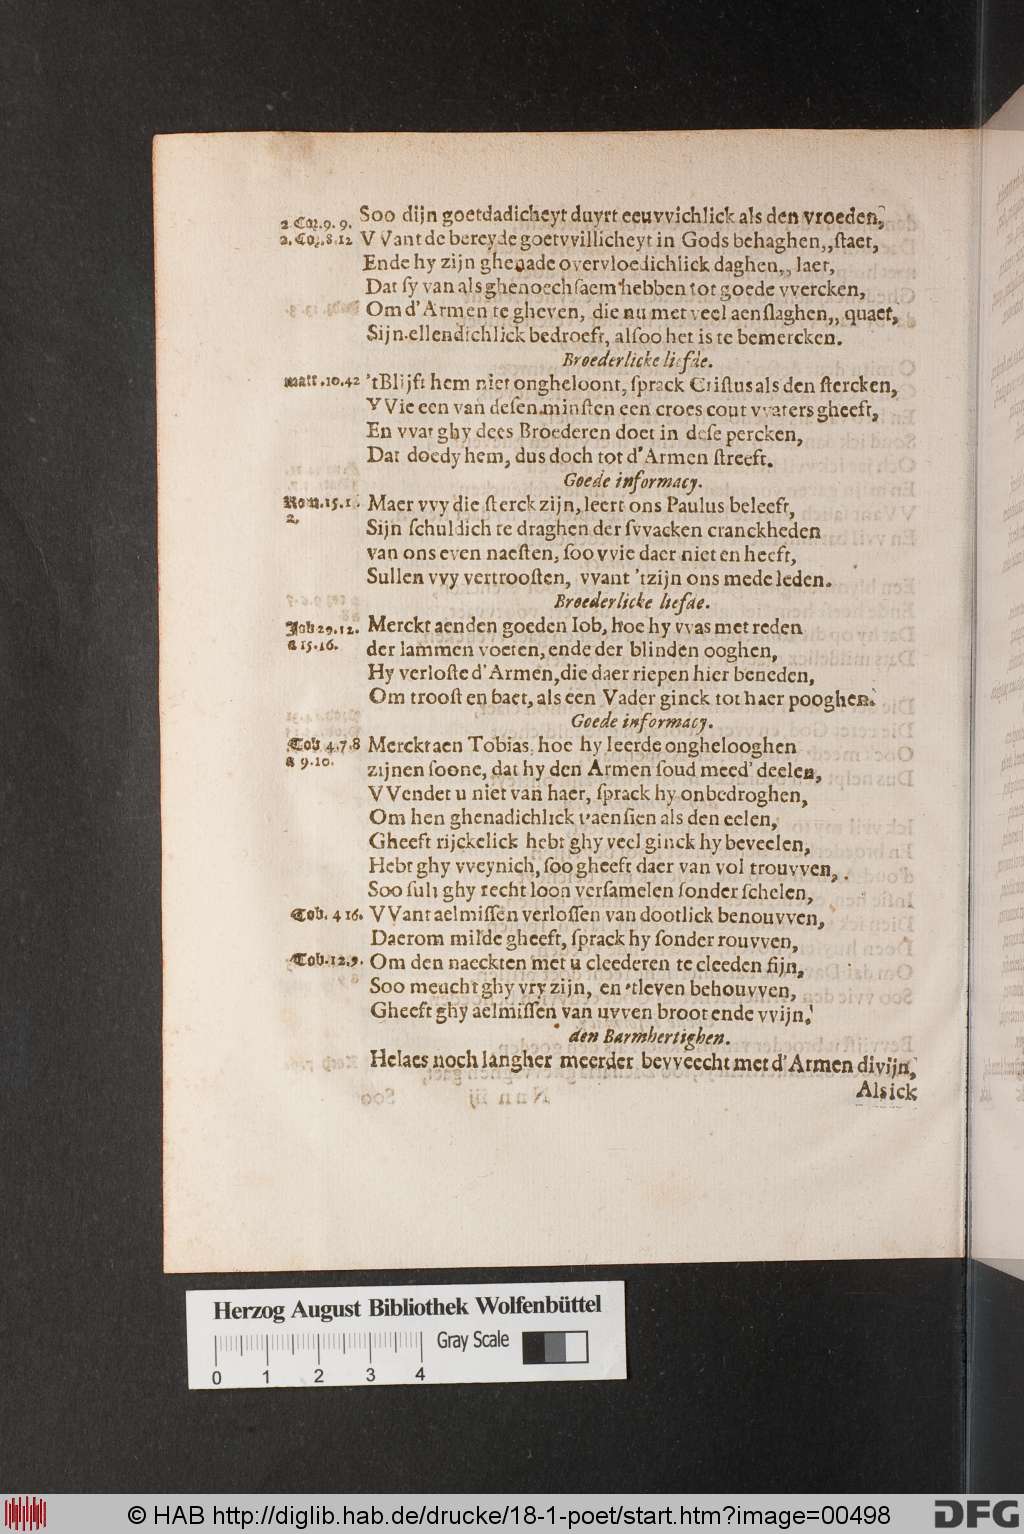 2 Cor. 9. 9. Soo dijn goetdadicheyt duyrt eeuvvichlick als den vroeden,
2. Cor. 8.12 VVant de bereyde goetvvillicheyt in Gods behaghen,, staet,
Ende hy zijn ghenade overvloedichlick daghen,, laet,
Dat sy van als ghenoechsaem hebben tot goede vvercken,
Om d'Armen te gheven, die nu met veel aenslaghen,, quaet,
Sijn ellendichlick bedroeft, alsoo het is te bemercken.
Broederlicke liefde.
Matt. 10. 42 'tBlijft hem niet ongheloont, sprack Cristus als den stercken,
VVie een van desen minsten een croes cout vvaters gheeft,
En vvat ghy dees Broederen doet in dese percken,
Dat doedy hem, dus doch tot d'Armen streeft.
Goede informacy.
Rom. 15. 1. Maer vvy die sterck zijn, leert ons Paulus beleeft,
2. Sijn schuldich te draghen der svvacken cranckheden
van ons even naesten, soo vvie daer niet en heeft,
Sullen vvy vertroosten, vvant 'tzijn ons mede leden.
Broederlicke liefde.
Job 29. 12. Merckt aenden goeden Iob, hoe hy vvas met reden
a 15. 16. der lammen voeten, ende der blinden ooghen,
Hy verloste d'Armen, die daer riepen hier beneden,
Om troost en baet, als een Vader ginck tot haer pooghen.
Goede informacy.
Tob 4. 7. 8 Merckt aen Tobias, hoe hy leerde onghelooghen
a 9. 10. zijnen soone, dat hy den Armen soud meed' deelen,
VVendet u niet van haer, sprack hy onbedroghen,
Om hen ghenadichlick t'aensien als den eelen,
Gheeft rijckelick hebt ghy veel ginck hy beveelen,
Hebt ghy vveynich, soo gheeft daer van vol trouvven,
Soo sult ghy recht loon versamelen sonder schelen,
Tob. 4 16. VVant aelmissen verlossen van dootlick benouvven,
Daerom milde gheeft, sprack hy sonder rouvven,
Tob. 12. 9. Om den naeckten met u cleederen te cleeden fijn,
Soo meucht ghy vry zijn, en 'tleven behouvven,
Gheeft ghy aelmissen van uvven broot ende vvijn.
den Barmhertighen.
Helaes noch langher meerder bevveecht met d'Armen divijn,
Als ick
Herzog August Bibliothek Wolfenbüttel
Gray Scale
0 1 2 3 4
© HAB http://diglib.hab.de/drucke/18-1-poet/start.htm?image=00498
DFG